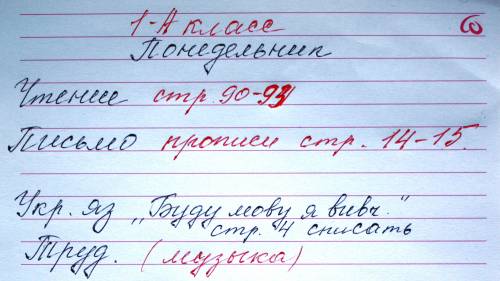 1-А класс
Понедельник
Чтение стр. 90-93
Письмо прописи стр. 14-15.
Укр. яз „Буду мову я вивч."
стр. 4 списать
Труд. (музыка)